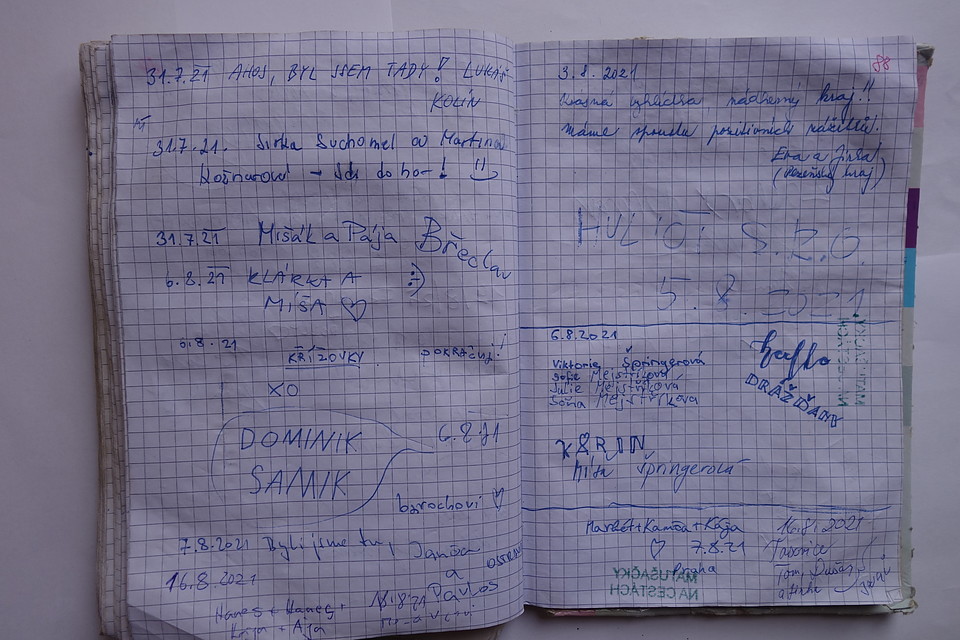 31.7.21 AHOJ, BYL JSEM TADY! LUKÁŠ
KOLÍN
31.7.21. Jirka Suchomel od Martinu
do hor!
31.7.21 Mišák a Pája Břeclav
6.8.21 KLÁRKA A :)
MÍŠA ♡
6.8.21 KŘÍŽOVKY pokračuj!!
XO
DOMINIK 6.8.21
SAMIK
barochovi ♡
7.8.2021 Byli jsme tu, Janča
a
Pavlos
16.8.2021
Hanes + Hanes +
Kája + Ája
18.8.21
88
3.8.2021
krásná vyhlídka nádherný kraj!!
máme spoustu pozitivních zážitků.
Eva a Jirka
(Plzeňský kraj)
5.8.2021
6.8.2021
Viktorie Špringerová
Sofie Mejstříková
Julie Mejstříková
Soňa Mejstříková
DRÁŽĎANY
KARIN
Míša Špringerová
Markét+Kamča+Kája
♡ 7.8.21
Praha
16.8.2021
MATUŠAČKY
NA CESTÁCH